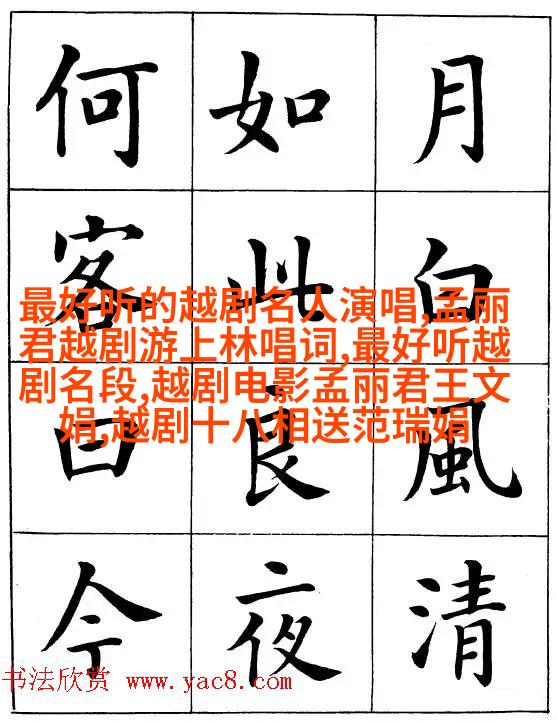 月白風清
如此良夜
何客曰今
最好听的越剧名人演唱,孟丽
君越剧游上林唱词,最好听越
剧名段,越剧电影孟丽君王文
娟,越剧十八相送范瑞娟
书法欣赏 www.yac8.com